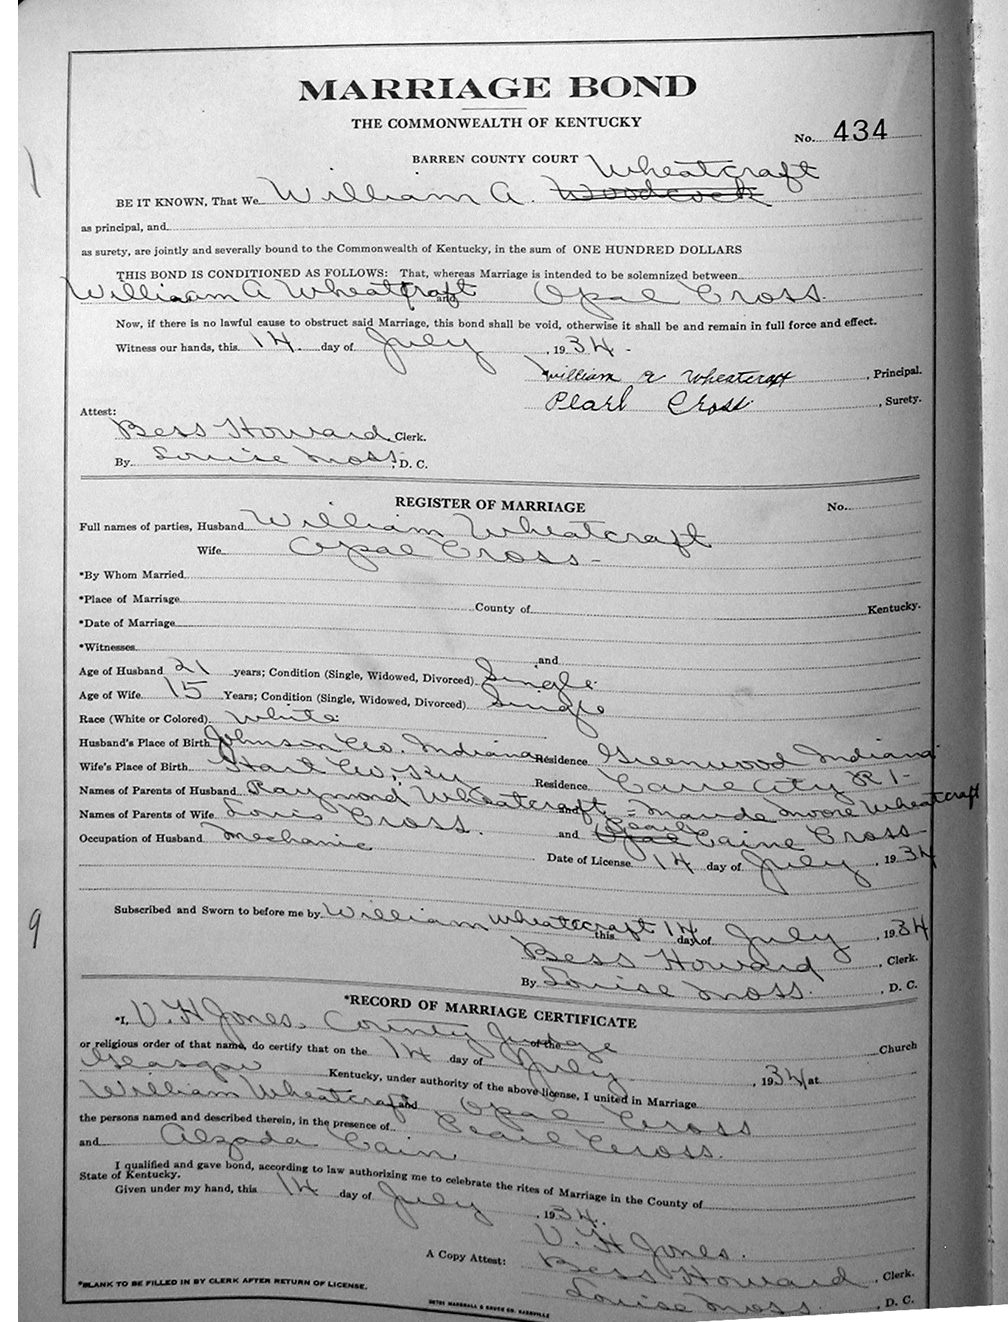 MARRIAGE BOND
THE COMMONWEALTH OF KENTUCKY
No. 434
BARREN COUNTY COURT
Wheatcraft
BE IT KNOWN, That We William A. Woodcock
as principal, and
as surety, are jointly and severally bound to the Commonwealth of Kentucky, in the sum of ONE HUNDRED DOLLARS
THIS BOND IS CONDITIONED AS FOLLOWS: That, whereas Marriage is intended to be solemnized between
William A Wheatcraft and Opal Cross.
Now, if there is no lawful cause to obstruct said Marriage, this bond shall be void, otherwise it shall be and remain in full force and effect.
Witness our hands, this 14 day of July, 1934.
William a Wheatcraft, Principal.
Pearl Cross, Surety.
Attest:
Bess Howard Clerk.
By Louise Moss, D. C.
REGISTER OF MARRIAGE No.
Full names of parties, Husband William Wheatcraft
Wife Opal Cross
*By Whom Married
*Place of Marriage County of Kentucky.
*Date of Marriage
*Witnesses and
Age of Husband 21 years; Condition (Single, Widowed, Divorced) Single
Age of Wife 15 Years; Condition (Single, Widowed, Divorced) Single
Race (White or Colored) White
Husband's Place of Birth Johnson Co. Indiana Residence Greenwood Indiana
Wife's Place of Birth Hart Co, Ky Residence Cave City R 1-
Names of Parents of Husband Raymond Wheatcraft and Maude Moore Wheatcraft
Names of Parents of Wife Louis Cross. and Opal Pearl Caine Cross
Occupation of Husband Mechanic
Date of License 14 day of July, 1934
Subscribed and Sworn to before me by William Wheatcraft this 14 day of July, 1934
Bess Howard, Clerk.
By Louise Moss., D. C.
*RECORD OF MARRIAGE CERTIFICATE
*I, V. H Jones, County Judge of the Church
or religious order of that name, do certify that on the 14 day of July, 1934 at
Glasgow Kentucky, under authority of the above license, I united in Marriage
William Wheatcraft and Opal Cross
the persons named and described therein, in the presence of Pearl Cross.
and Alzada Cain.
I qualified and gave bond, according to law authorizing me to celebrate the rites of Marriage in the County of
State of Kentucky.
Given under my hand, this 14 day of July, 1934.
V. H Jones.
A Copy Attest: Bess Howard, Clerk.
Louise Moss., D. C.
*BLANK TO BE FILLED IN BY CLERK AFTER RETURN OF LICENSE.
MARSHALL & BRUCE CO. NASHVILLE
9